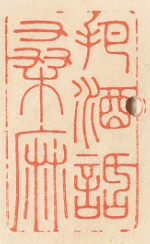 把酒話
桑麻